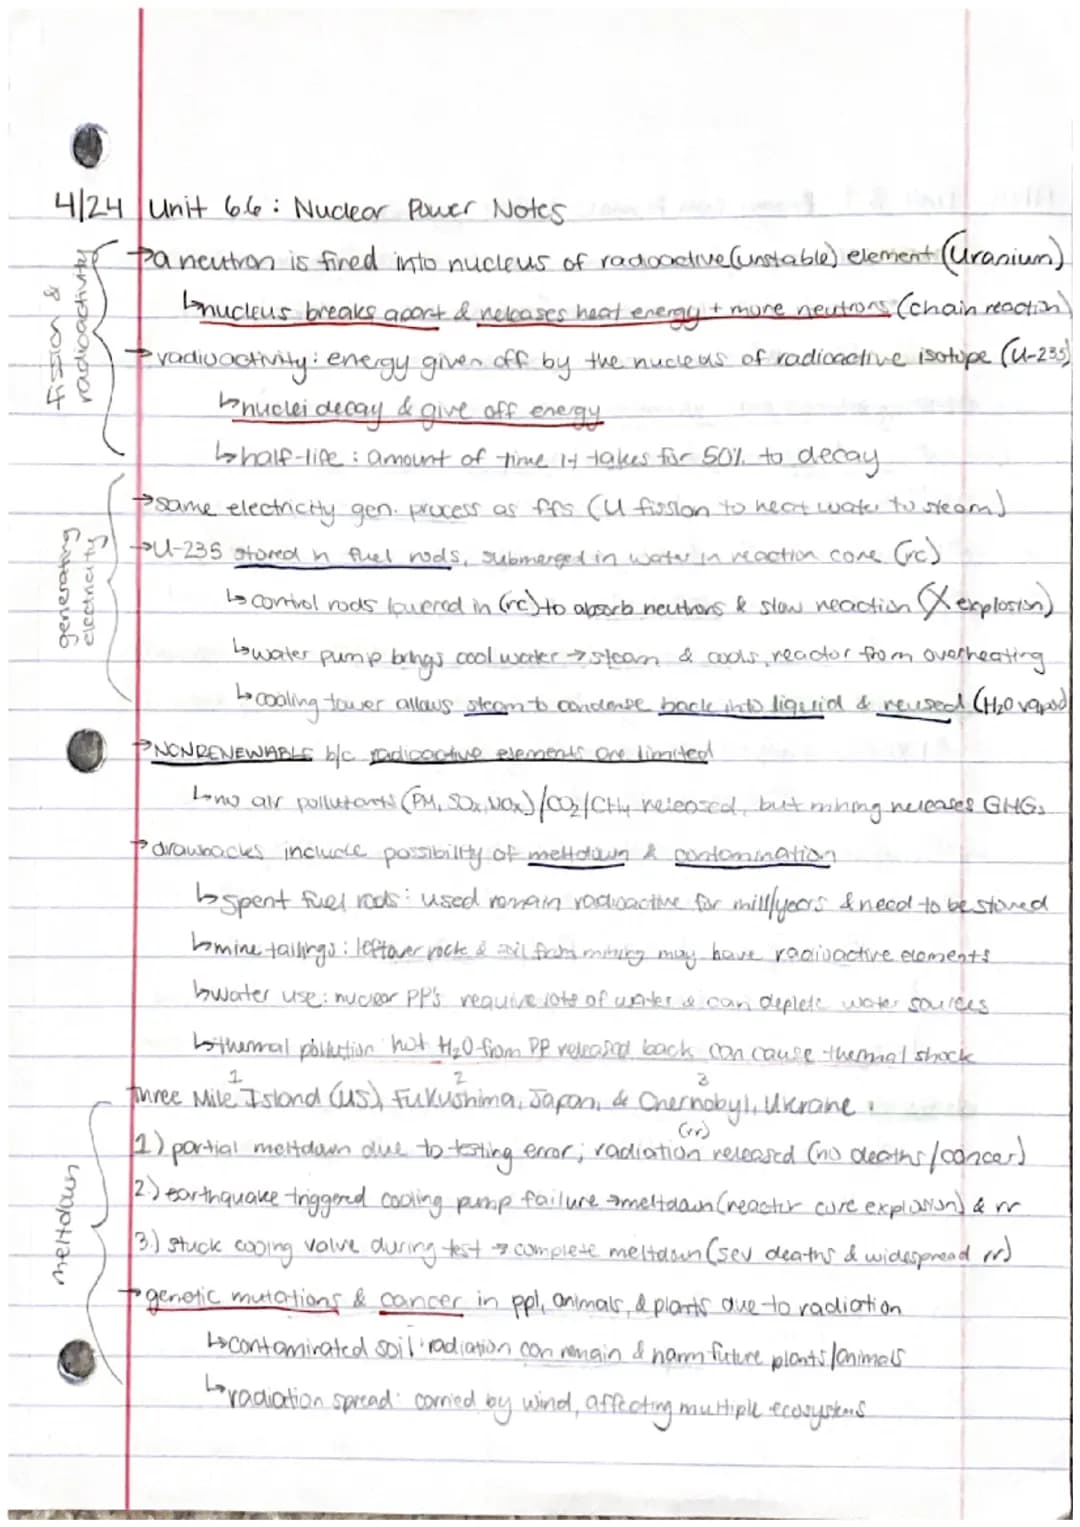 4/24 Unit 6.6: Nuclear Power Notes
fission & radioactivity
→a neutron is fired into nucleus of radioactive (unstable) element (Uranium)
↳nucleus breaks apart & releases heat energy + more neutrons (chain reaction)
→radioactivity: energy given off by the nucleus of radioactive isotope (U-235)
↳nuclei decay & give off energy
↳half-life: amount of time it takes for 50% to decay
generating electricity
→same electricity gen. process as ffs (U fission to heat water to steam)
→U-235 stored in fuel rods, submerged in water in reaction core (rc)
↳control rods lowered in (rc) to absorb neutrons & slow reaction (X explosion)
↳water pump brings cool water → steam & cools reactor from overheating
↳cooling tower allows steam to condense back into liquid & reused (H₂O vapor)
→NONRENEWABLE b/c radioactive elements are limited
↳no air pollutants (PM, SOx, NOx)/CO₂/CH₄ released, but mining releases GHGs
→drawbacks include possibility of meltdown & contamination
↳spent fuel rods: used remain radioactive for mill/years & need to be stored
↳mine tailings: leftover rock & soil from mining may have radioactive elements
↳water use: nuclear PP's require lots of water & can deplete water sources
↳thermal pollution: hot H₂O from PP released back can cause thermal shock
1 2 3
Three Mile Island (US), Fukushima, Japan, & Chernobyl, Ukraine
meltdown
(rr)
1) partial meltdown due to testing error; radiation released (no deaths/cancer)
2.) earthquake triggered cooling pump failure →meltdown (reactor core explosion) & rr
3.) stuck cooling valve during test → complete meltdown (sev deaths & widespread rr)
→genetic mutations & cancer in ppl, animals, & plants due to radiation
↳contaminated soil: radiation can remain & harm future plants/animals
↳radiation spread: carried by wind, affecting multiple ecosystems